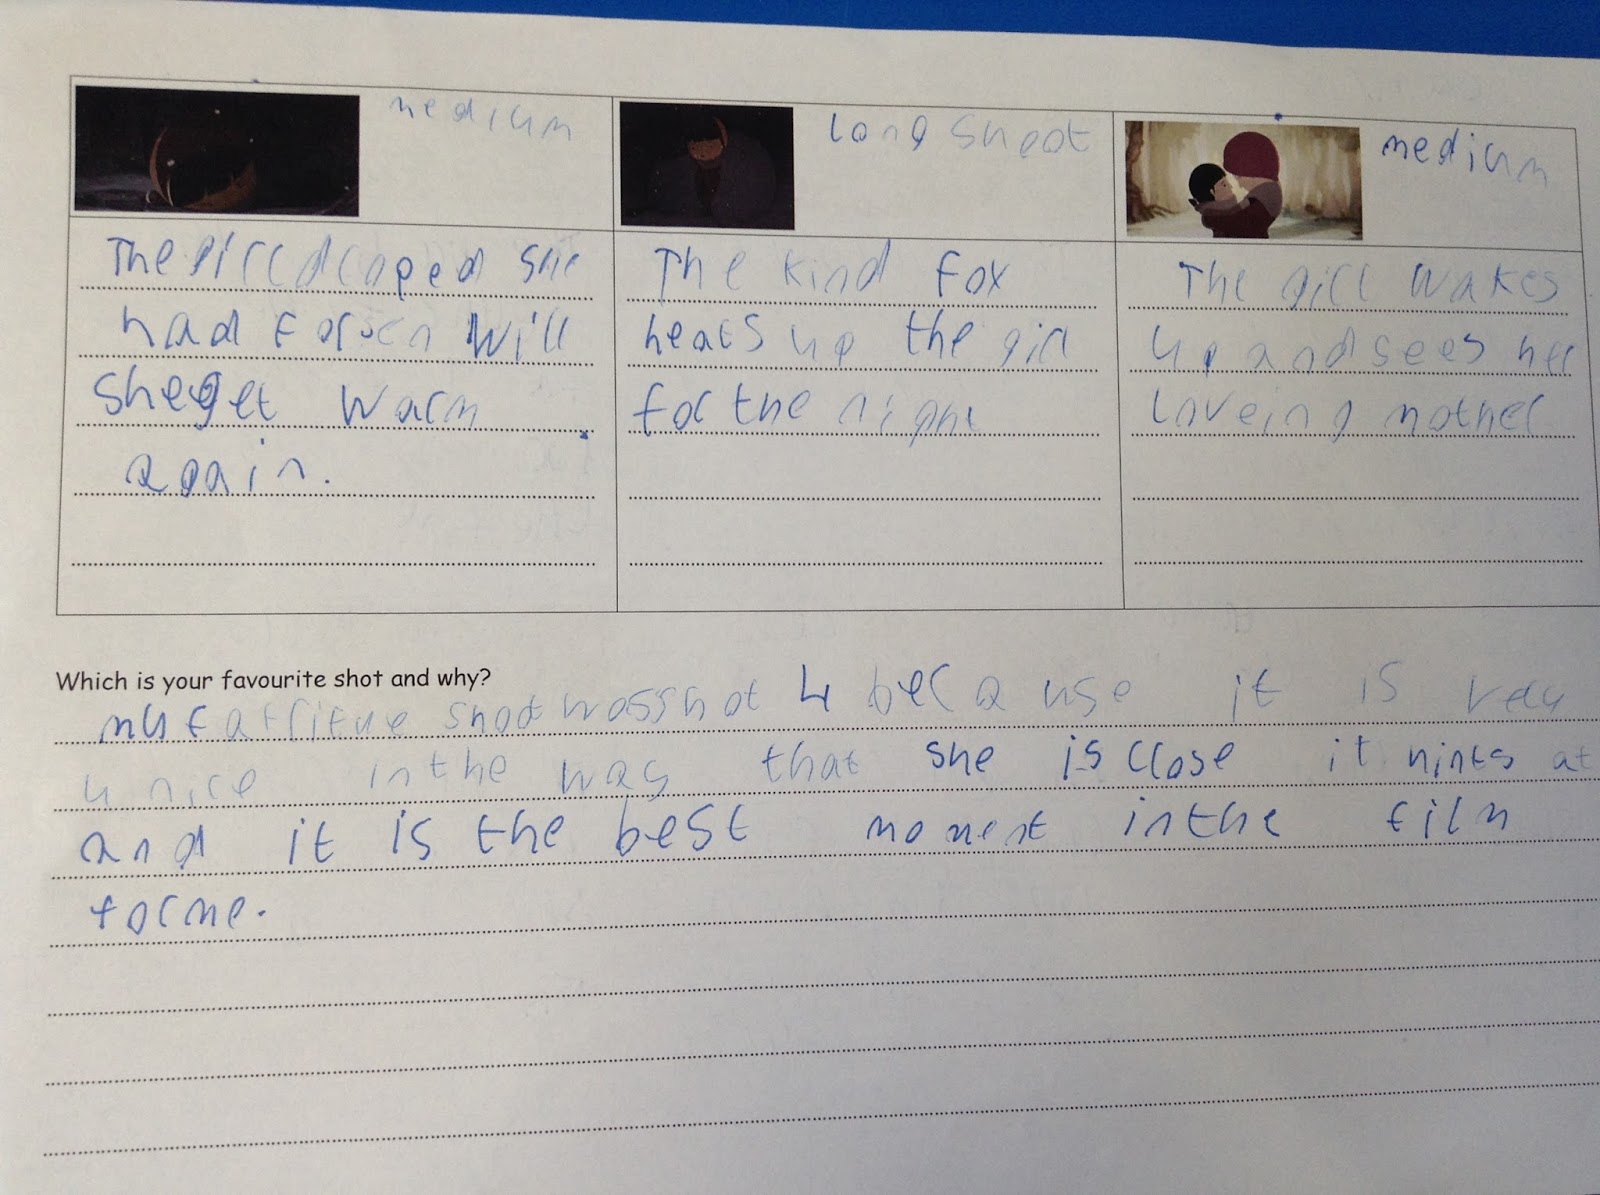 medium
long shoot
medium
The girl droped she
had frozen will
she get warm
again.
The kind fox
heats up the girl
for the night
The girl wakes
up and sees her
loveing mother
Which is your favourite shot and why?
my shoot was shot 4 because it is very
nice in the way that she is close it hints at
and it is the best moment in the film
for me.